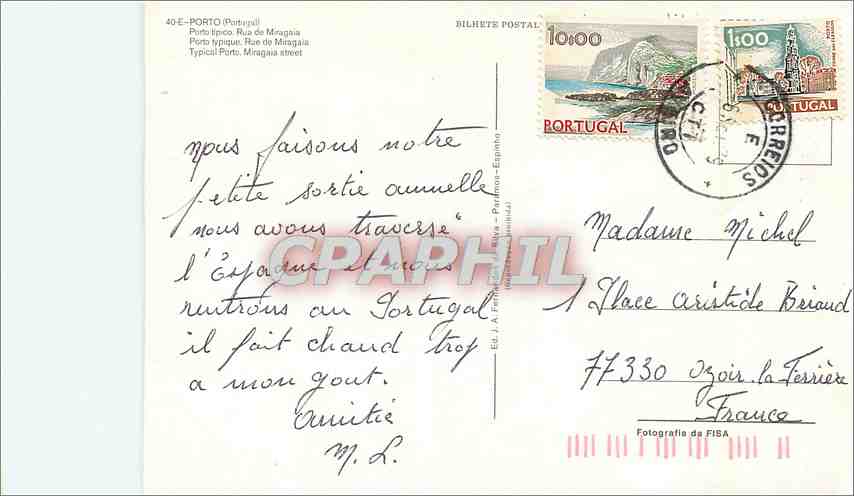 40-E-PORTO (Portugal)
Porto típico. Rua de Miragaia
Porto typique. Rue de Miragaia
Typical Porto. Miragaia street
BILHETE POSTAL
10$00
PORTUGAL
1$00
PORTUGAL
CORREIOS
CTT
nous faisons notre
petite sortie annuelle
nous avons traversé
l'Espagne et nous
rentrons au Portugal
il fait chaud trop
a mon gout.
Amitié
M. L.
CPAPHIL
Ed. J. A. Fernandes da Silva - Paramos-Espinho
Madame Michel
1 Place Aristide Briand
77330 Ozoir la Ferrière
France
Fotografia da FISA